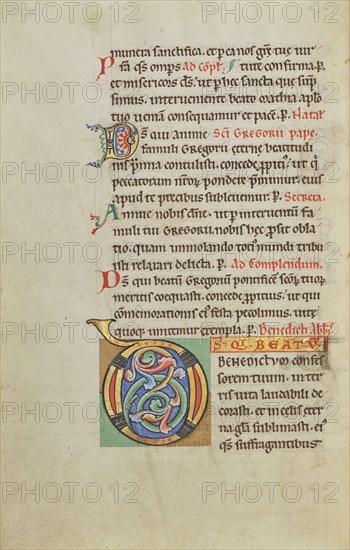 munera sanctifica. et p eanos grẽ tue uir
fa qs omps Ad cõpl. Statute confirma p.
et misericors ds. ut p hec sancta que sũp
simus. interueniente beato mathia aplo
tuo ueniã consequamur et pacẽ. p. Natal
Ds qui anime Sci Gregorii pape.
famuli Gregorii eterne beatitudi
nis premia contulisti. concede ppiti'. ut q
peccatorum nr̃or̃ pondere premimur. eius
apud te precibus subleuemur. p. Secreta.
Annue nobis dñe. ut p interuentũ fa
muli tui GREGORII nobis hec prosit obla
tio. quam immolando toti' mundi tribu
isti relaxari delicta. p. Ad Complendum.
Ds qui beatũ Gregoriũ pontificẽ scõr̃ tuor̃
meritis coequasti. concede ppitius. ut qui
cõmemorationis ei' festa pcolimus. uite
quoqe imitemur exempla. p. Benedicti Abb.
BEATV
BENEDICTVM confes
sorem tuum. inter
ris uita laudabili de
corasti. et in celis eter
na gla sublimasti. ei'
qs suffragantibus
PHOTO 12